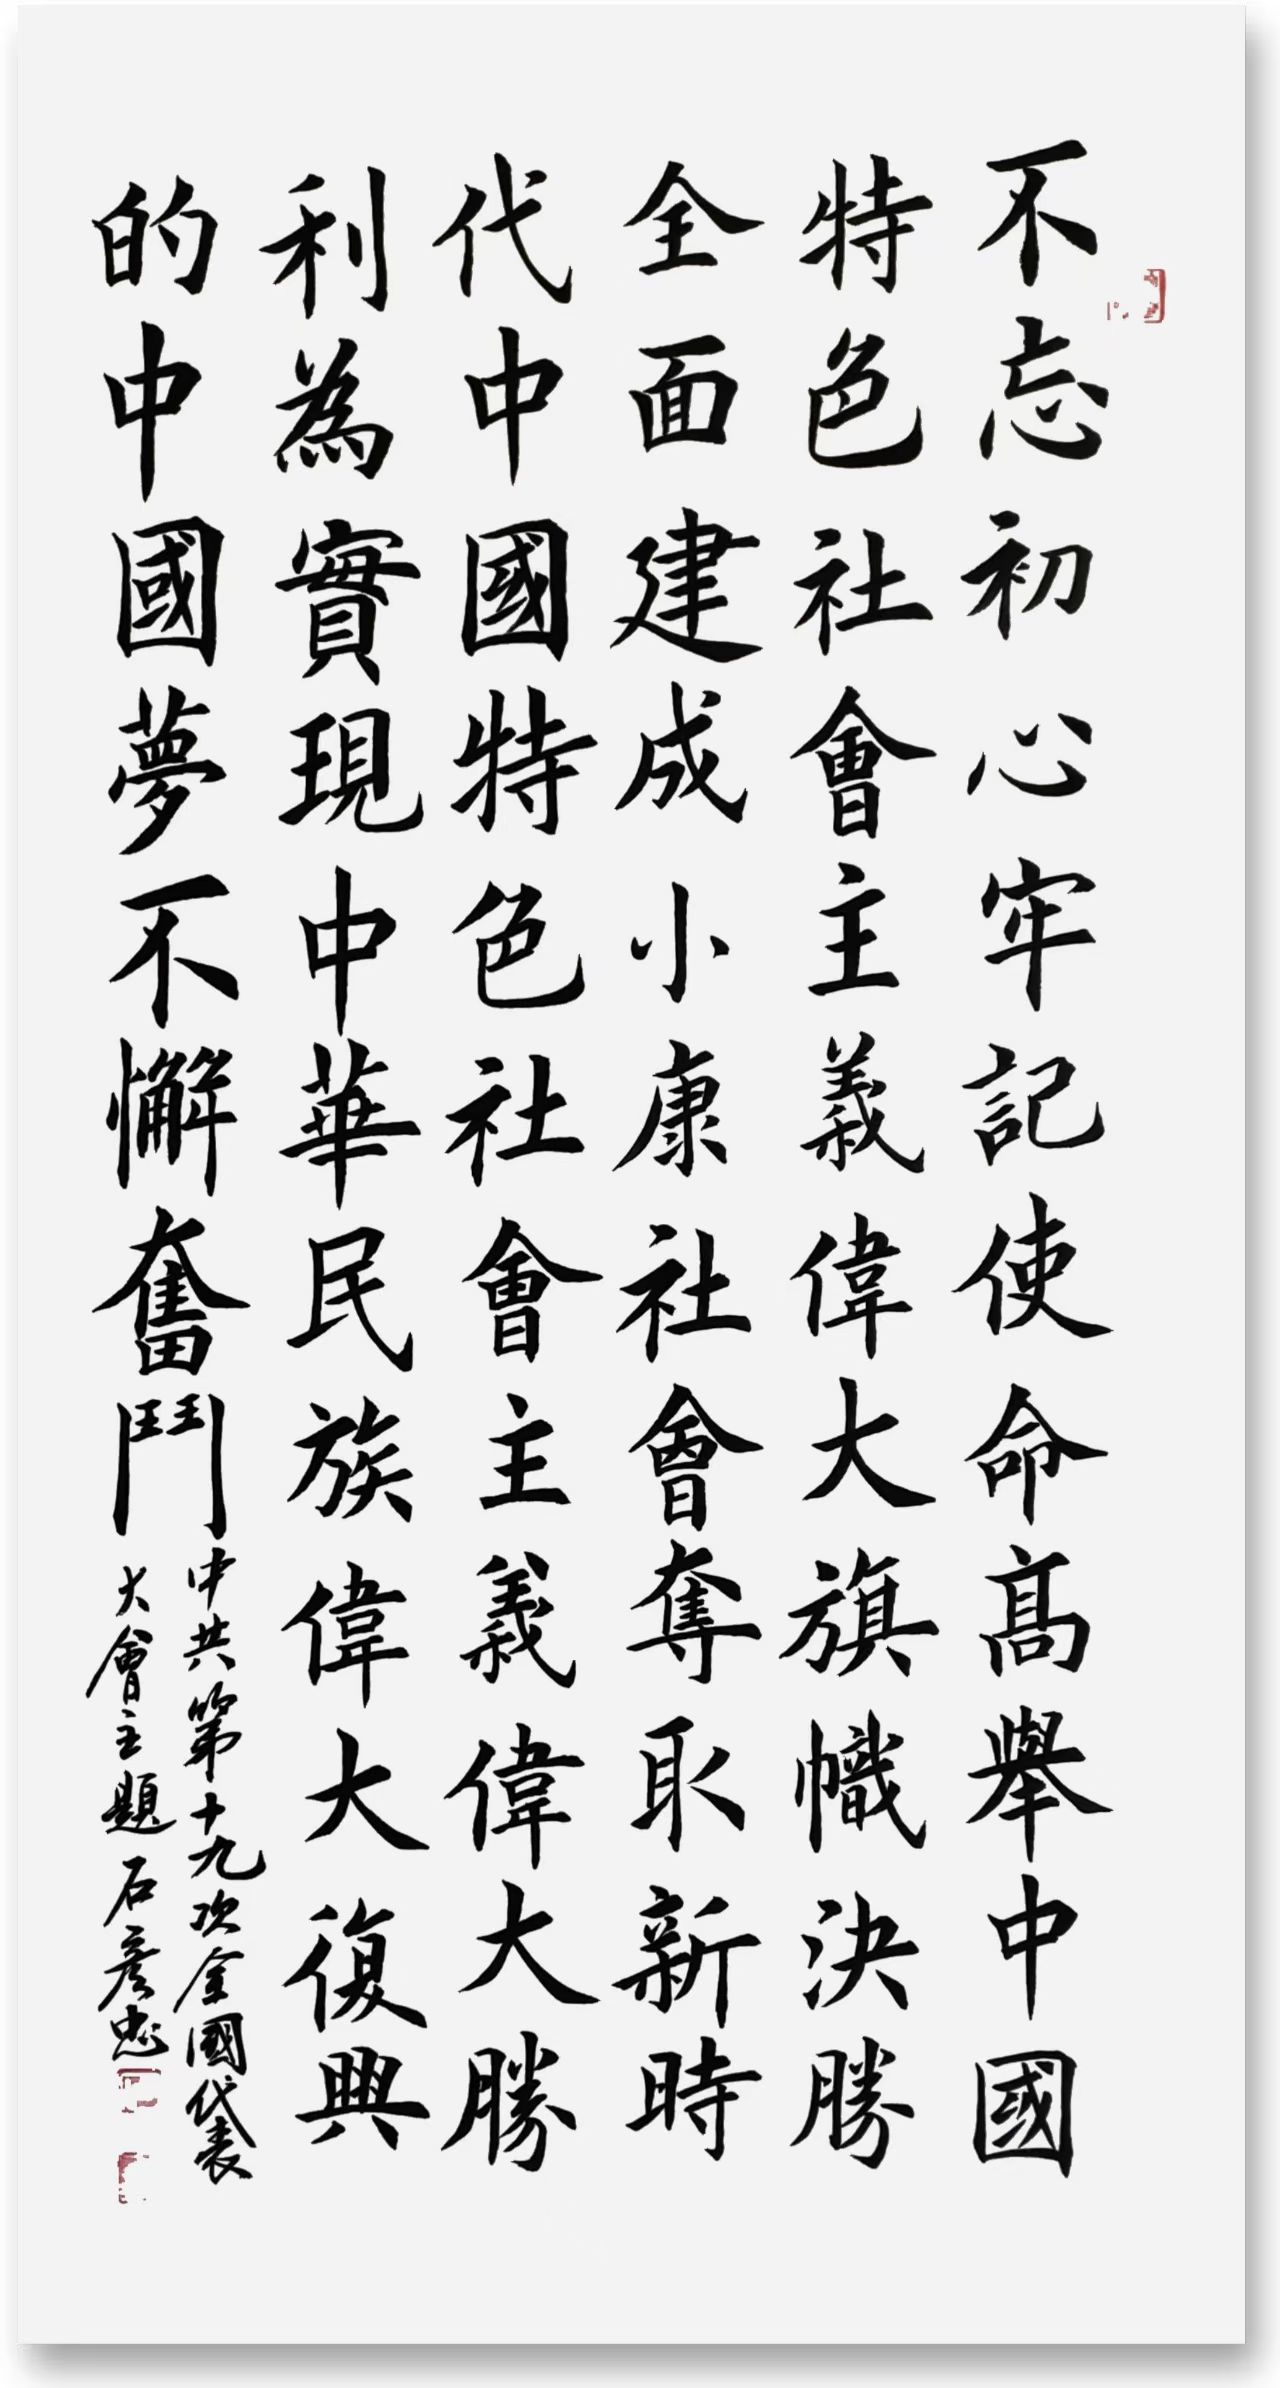 不忘初心牢記使命高舉中國
特色社會主義偉大旗幟決勝
全面建成小康社會奪取新時
代中國特色社會主義偉大勝
利為實現中華民族偉大復興
的中國夢不懈奮鬥
中共第十九次全國代表
大會主題 石彥忠